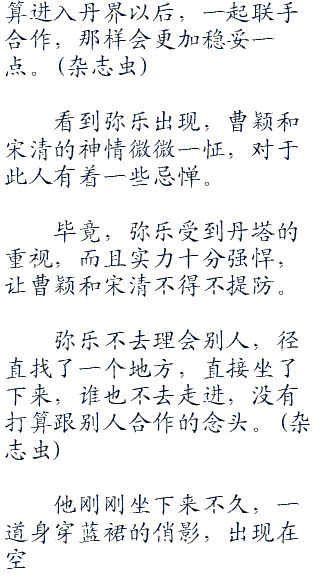 算进入丹界以后，一起联手
合作，那样会更加稳妥一
点。(杂志虫)
看到弥乐出现，曹颖和
宋清的神情微微一怔，对于
此人有着一些忌惮。
毕竟，弥乐受到丹塔的
重视，而且实力十分强悍，
让曹颖和宋清不得不提防。
弥乐不去理会别人，径
直找了一个地方，直接坐了
下来，谁也不去走进，没有
打算跟别人合作的念头。(杂
志虫)
他刚刚坐下来不久，一
道身穿蓝裙的俏影，出现在
空